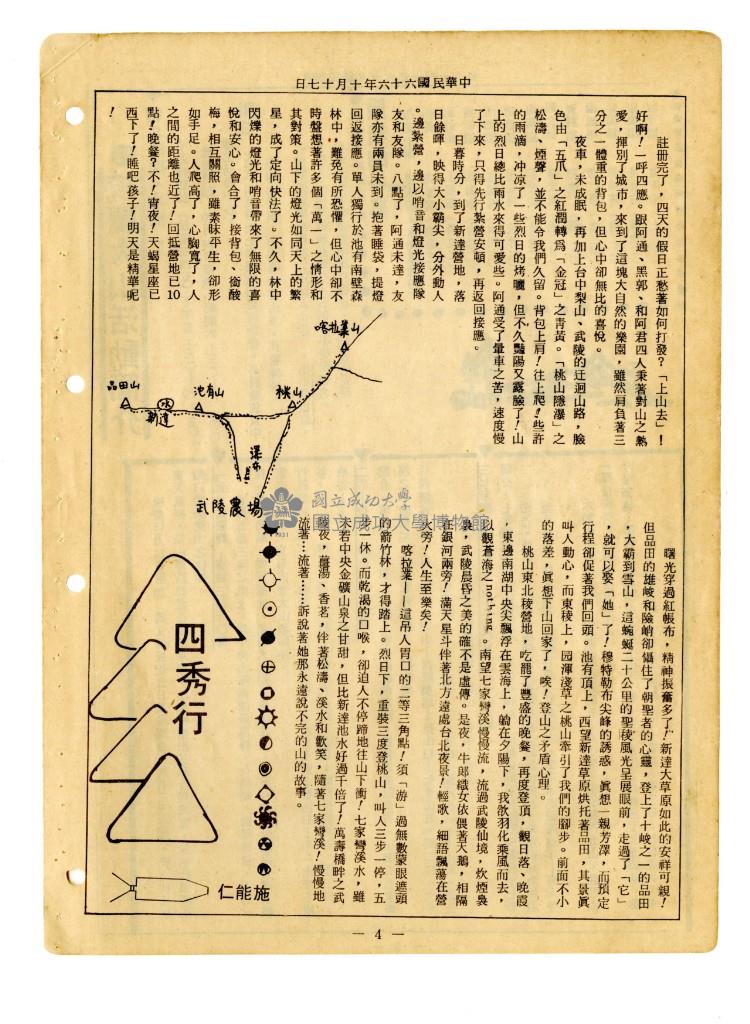 中華民國六十六年十月十七日
四秀行
施能仁
註冊完了，四天的假日正愁著如何打發？「上山去」！
好啊！一呼四應。跟阿通、黑郭、和阿君四人秉著對山之熱
愛，揮別了城市，來到了這塊大自然的樂園，雖然肩負著三
分之一體重的背包，但心中卻無比的喜悅。
夜車，未成眠，再加上台中梨山、武陵的迂迴山路，臉
色由「五爪」之紅潤轉爲「金冠」之靑黃。「桃山隱瀑」之
松濤、煙聲，並不能令我們久留。背包上肩！往上爬！些許
的雨滴，冲凉了一些烈日的烤曬，但不久豔陽又露臉了！山
上的烈日總比雨水來得可愛些。阿通受了暈車之苦，速度慢
了下來，只得先行紮營安頓，再返回接應。
日暮時分，到了新達營地，落
日餘暉，映得大小霸尖，分外動人
。邊紮營，邊以哨音和燈光接應隊
友和友隊。八點了，阿通未達，友
隊亦有兩員未到。抱著睡袋，提燈
回返接應。單人獨行於池有南壁森
林中，難免有所恐懼，但心中卻不
時盤想著許多個「萬一」之情形和
其對策。山下的燈光如同天上的繁
星，成了定向快法了。不久，林中
閃爍的燈光和哨音帶來了無限的喜
悅和安心。會合了，接背包、銜酸
梅，相互關照，雖素昧平生，卻形
如手足。人爬高了，心胸寬了，人
之間的距離也近了！回抵營地已10
點！晚餐？不！宵夜！天蝎星座已
西下了！睡吧孩子！明天是精華呢
！
喀拉業山
桃山
池有山
品田山
水
新達
瀑布
武陵農場
曙光穿過紅帳布，精神振奮多了！新達大草原如此的安祥可親！
但品田的雄峻和險峭卻懾住了朝聖者的心靈，登上了十峻之一的品田
，大霸到雪山，這蜿蜒二十公里的聖稜風光呈展眼前，走過了「它」
，就可以娶「她」了！穆特勒布尖峰的誘惑，眞想一親芳澤，而預定
行程卻促著我們回頭。池有頂上，西望新達草原烘托著品田，其景眞
叫人動心，而東稜上，园渾淺草之桃山牽引了我們的腳步。前面不小
的落差，眞想下山回家了，唉！登山之矛盾心理。
桃山東北稜營地，吃罷了豐盛的晚餐，再度登頂，觀日落、晚霞
，東邊南湖中央尖飄浮在雲海上，躺在夕陽下，我欲羽化乘風而去，
以觀蒼海之nothing。南望七家彎溪慢慢流，流過武陵仙境，炊煙裊
裊，武陵晨昏之美的確不是虛傳。是夜，牛郎織女依偎著天鵝，相隔
在銀河兩旁！滿天星斗伴著北方遠處台北夜景！輕歌，細語飄蕩在營
火旁！人生至樂矣！
喀拉業——這吊人胃口的二等三角點！須「游」過無數蒙眼遮頭
的箭竹林，才得踏上。烈日下，重裝三度登桃山，叫人三步一停，五
步一休。而乾渴的口喉，卻迫人不停蹄地往山下衝！七家彎溪水，雖
未若中央金礦山泉之甘甜，但比新達池水好過千倍了！萬壽橋畔之武
陵夜，薑湯、香茗，伴著松濤、溪水和歡笑，隨著七家彎溪！慢慢地
流著……流著……訴說著她那永遠說不完的山的故事。
國立成功大學
國立成功大學博物館
1931
— 4 —